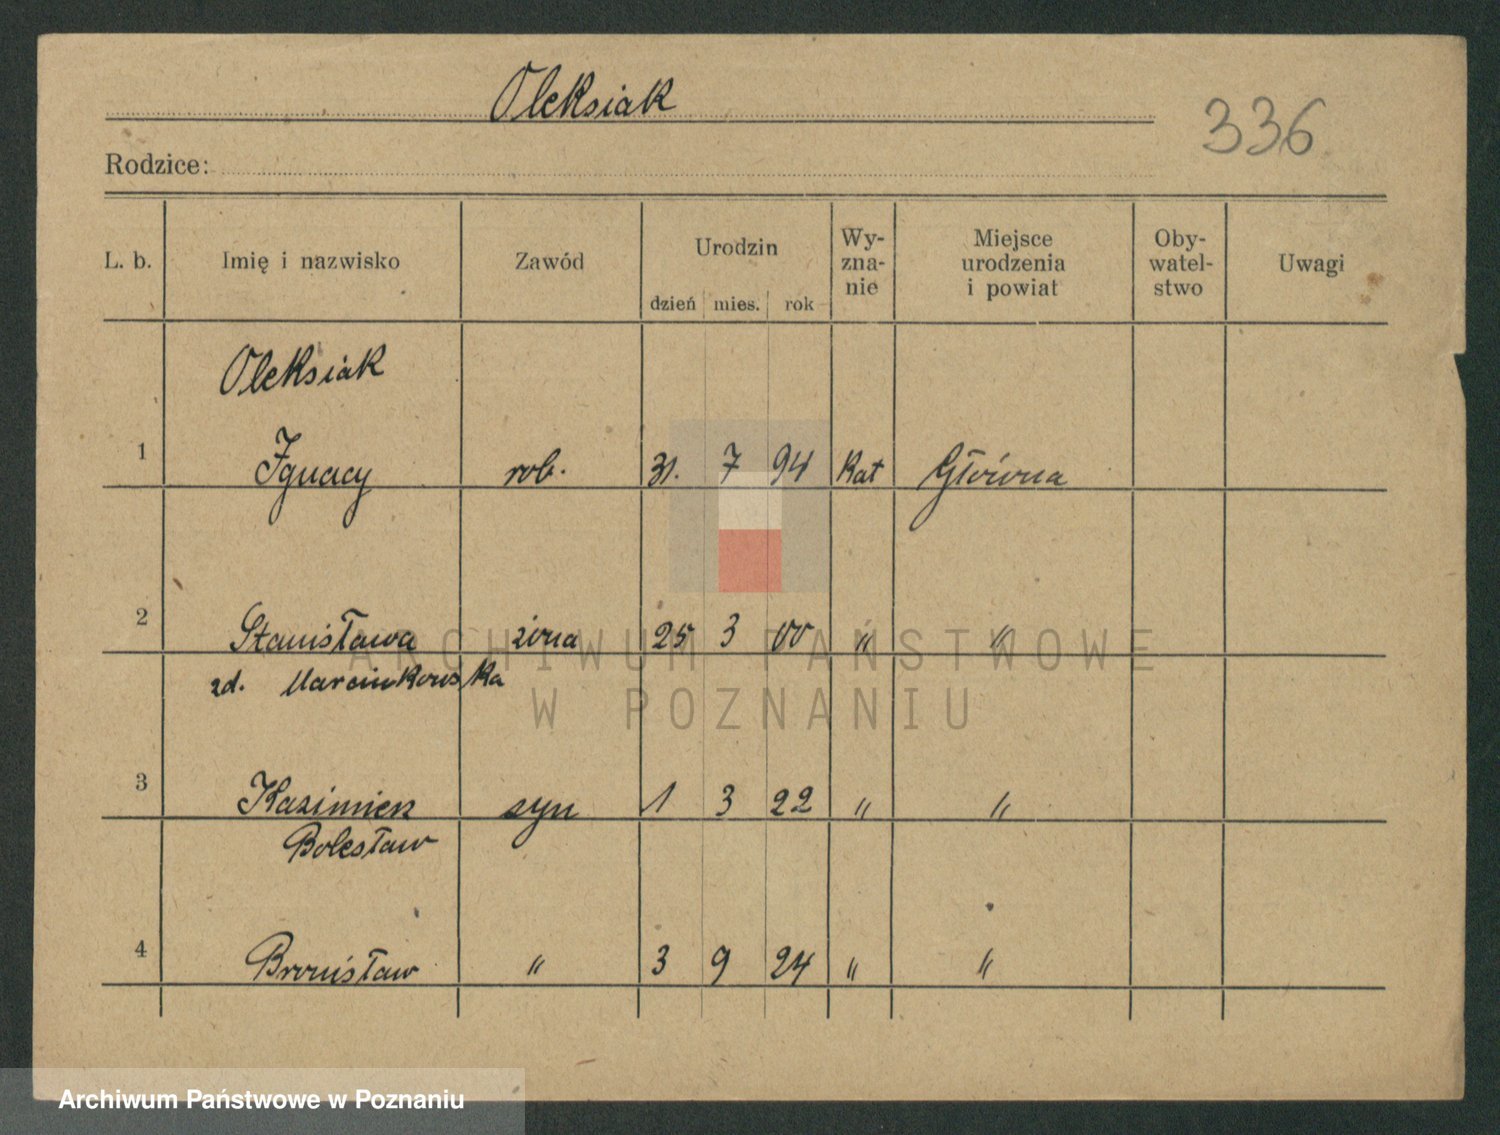 Oleksiak
336
Rodzice:
L. b. Imię i nazwisko Zawód Urodzin dzień mies. rok Wy-zna-nie Miejsce urodzenia i powiat Oby-watel-stwo Uwagi
Oleksiak
1 Ignacy rob. 31. 7 94 Kat Główna
2 Stanisława żona 25 3 00 " "
zd. Marcinkowska
3 Kazimierz syn 1 3 22 " "
Bolesław
4 Bronisław " 3 9 24 " "
ARCHIWUM PAŃSTWOWE
W POZNANIU
Archiwum Państwowe w Poznaniu